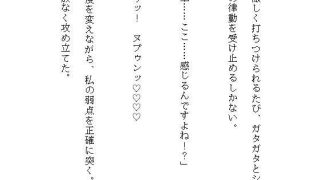 激しく打ちつけられるたび、ガタガタとシ
の律動を受け止めるしかない。
……ここ……感じるんですよね！？」
ッ！　ヌプゥンッ♡♡♡♡
度を変えながら、私の弱点を正確に突く。
赦なく攻め立てた。